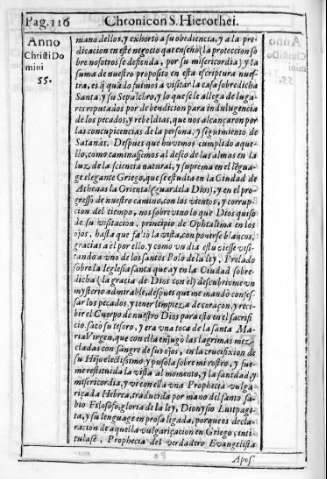 Pag. 116 Chronicon S. Hierothei.
Anno
Christi Do
mini
55.
mano dellos, y exhortò a su obediencia, y a la pre-
dicacion en este negocio que enseñò la proteccion so
bre nosotros se defienda, por su misericordia) y la
suma de nuestro proposito en esta escriptura nues-
tra, es q̃ quãdo fuimos a visitar la casa sobredicha
Santa, y su Sepulcro, y lo que se le allega de luga-
res reputados por de bendicion para indulugencia
de los pecados, y rebeldias, que nos alcançaron por
las concupicencias de la persona, y seguimiento de
Satanás. Despues que huvimos cumplido aque-
llo, como caminasemos al desio de las almos en la
luz, de la sciencia natural, y suprema en el lẽgua-
ge elegante Griego, que se estudia en la Ciudad de
Athenas la Oriental (guardela Dios), y en el pro-
gresso de nuestro camino, con los vientos, y corrup-
cion del tiempo, nos sobrevino lo que Dios quiso
de su visitacion, principio de Ophtalmia en los
ojos, hasta que faltò la vista, con ponerse blancos,
gracias a el por ello, y como un dia estuviesse visi-
tando a uno de los santos Polo de la ley, Prelado
sobre la Iglesia santa que ay en la Ciudad sobre-
dicha (la gracia de Dios con el) descubrione un
mysterio admirable, despues que me mandò confes-
sar los pecados, y tener limpieza de coraçon, y reci-
bir el Cuerpo de nuestro Dios para esto en el sacri-
ficio, sacò su tesoro, y era una toca de la santa Ma-
ria Virgen, que con ella enjugò las lagrimas mez-
cladas con sangre de sus ojos, en la crucifixion de
su Hijo el dulcissimo y pusola sobre mi rostro, y fue-
me restituida la vista al momento, y la sanidad, y
misericordia, y vi con ella una Prophecia vulga-
rizada Hebrea, traducida por mano del santo sa-
bio Filosofo, gloria de la ley, Dionysio
y su lenguaje en prosa ligada, porque es decla-
racion de aquella vulgarizacion en Griego, inti-
tulase, Prophecia del verdadero Evangelista
Apos.